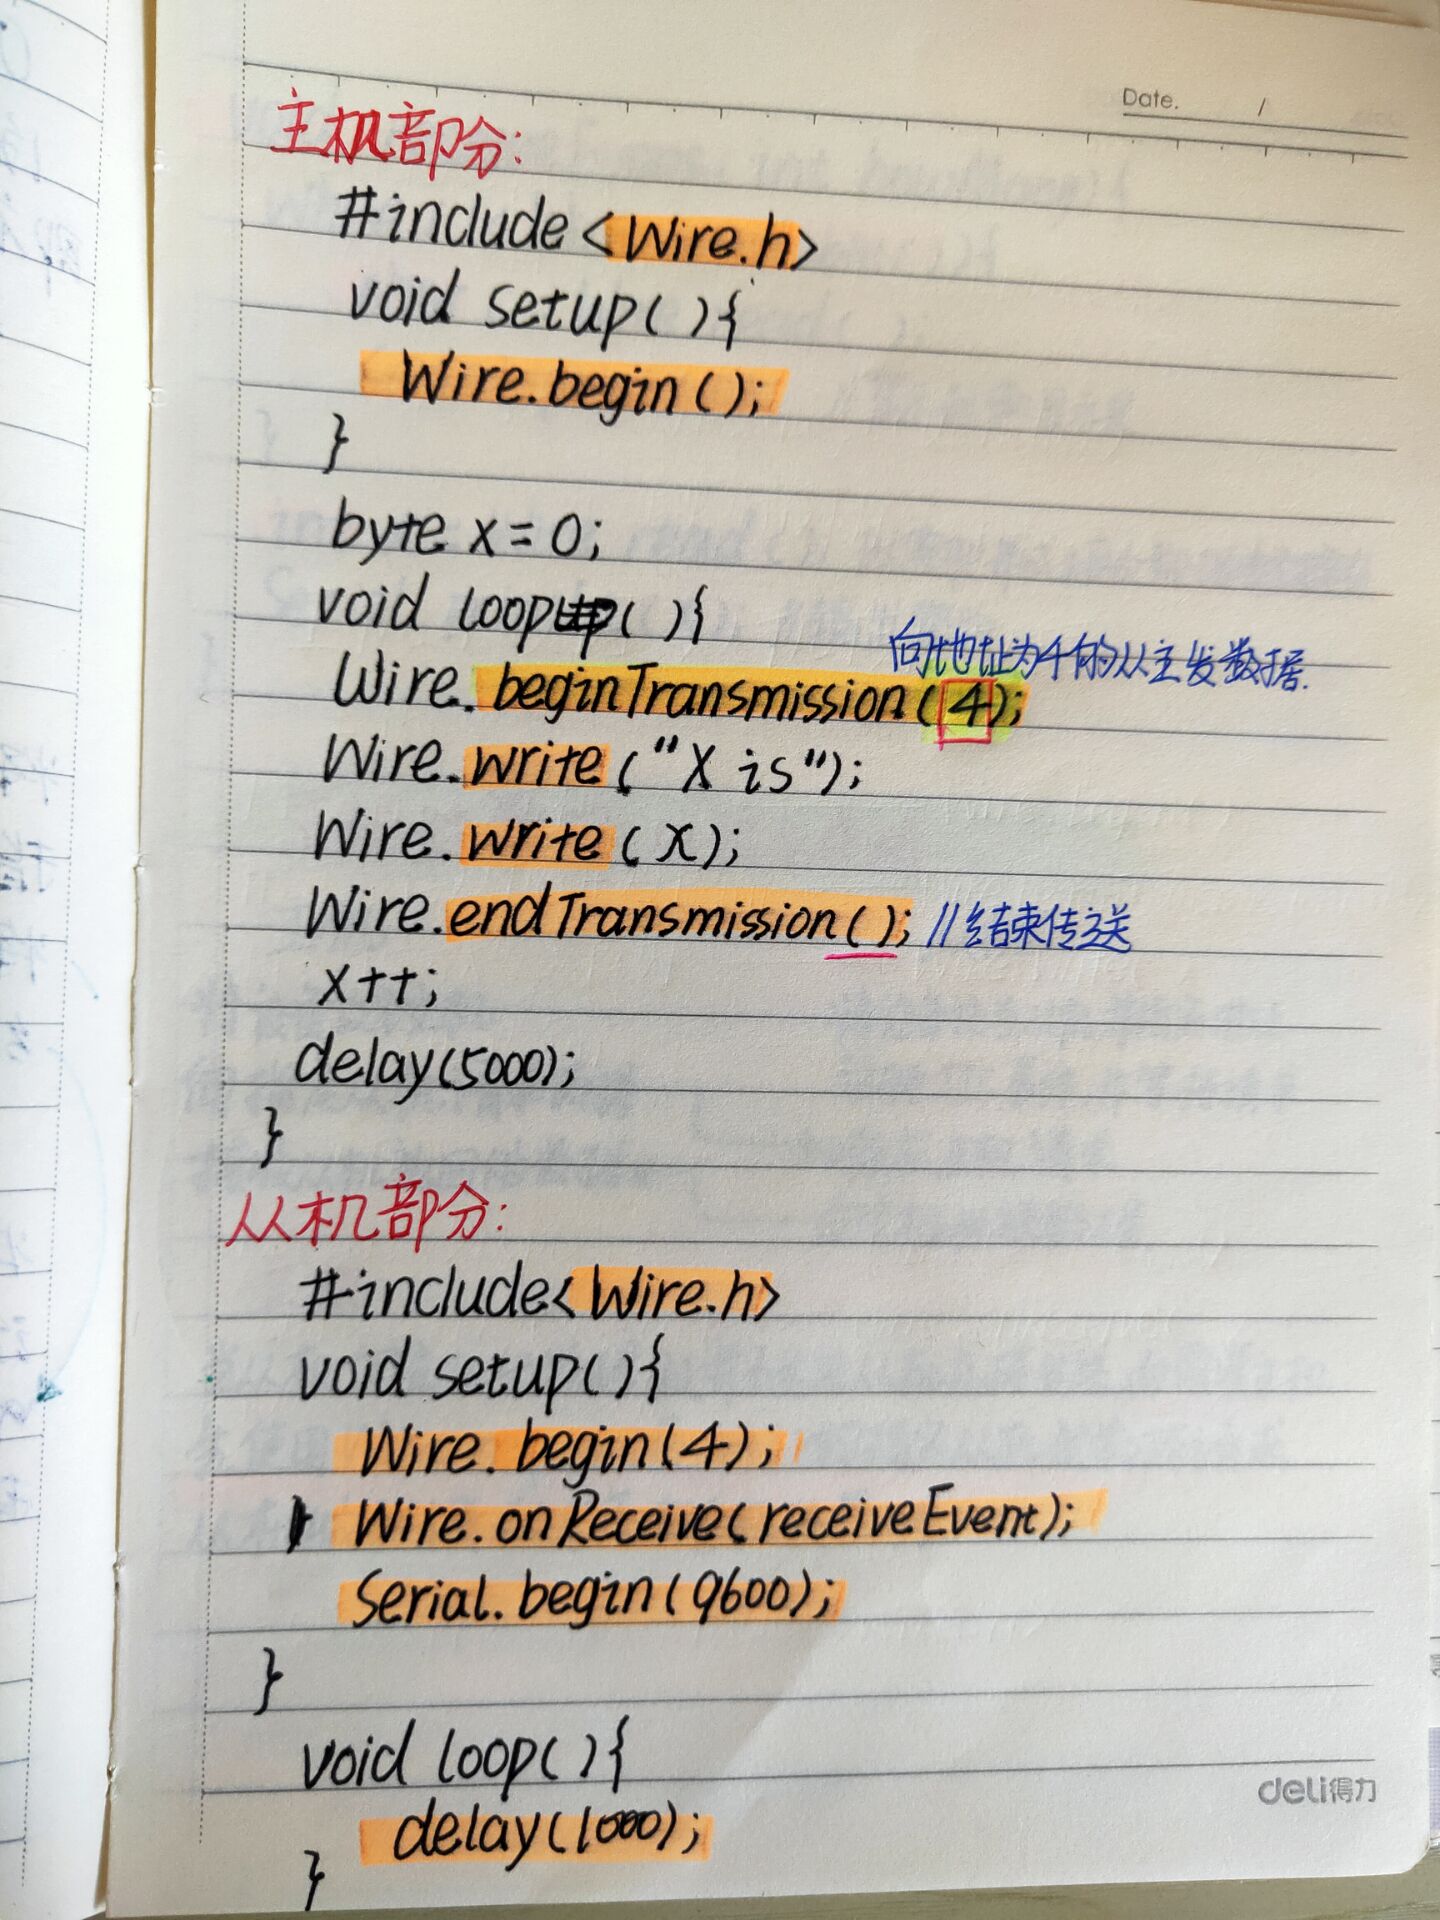 Date. /
主机部分:
#include <Wire.h>
void setup( ){
Wire.begin ( );
}
byte x = 0;
void loop( ){
向地址为4的从主发数据.
Wire. beginTransmission (4);
Wire. write ("X is");
Wire. write (x);
Wire. endTransmission ( ); //结束传送
x++;
delay(5000);
}
从机部分:
#include<Wire.h>
void setup(){
Wire. begin(4);
Wire. onReceive(receiveEvent);
Serial. begin(9600);
}
void loop(){
deli得力
delay(1000);
}